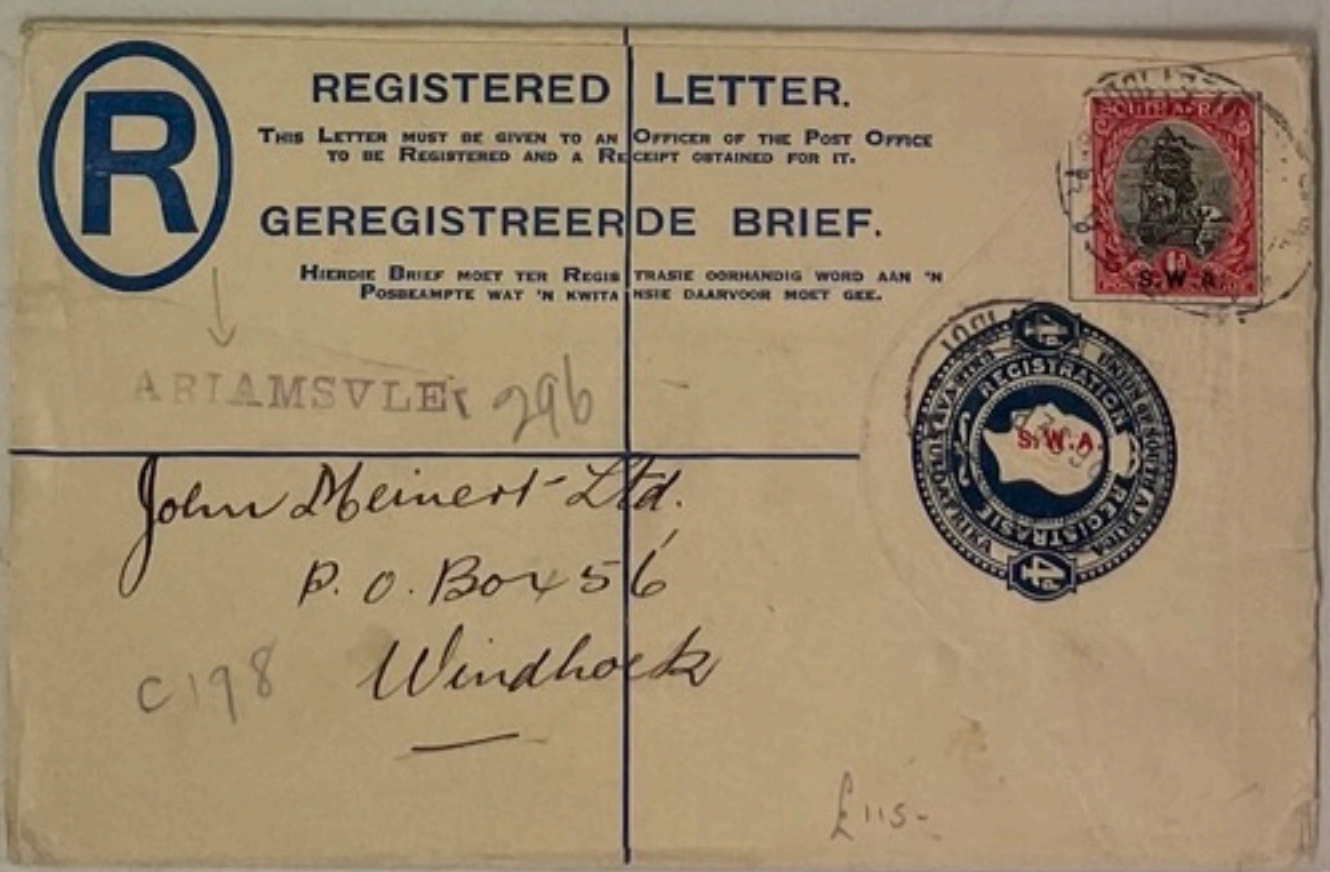 R
REGISTERED LETTER.
THIS LETTER MUST BE GIVEN TO AN OFFICER OF THE POST OFFICE
TO BE REGISTERED AND A RECEIPT OBTAINED FOR IT.
GEREGISTREERDE BRIEF.
HIERDIE BRIEF MOET TER REGISTRASIE OORHANDIG WORD AAN 'N
POSBEAMPTE WAT 'N KWITANSIE DAARVOOR MOET GEE.
SOUTH AFRICA
1d
S.W.A.
ARIAMSVLEI 296
4D
REGISTRATION
UNION OF SOUTH AFRICA
S.W.A.
REGISTRASIE
4D
John Meinert Ltd.
P. O. Box 56
Windhoek
C198
£115-